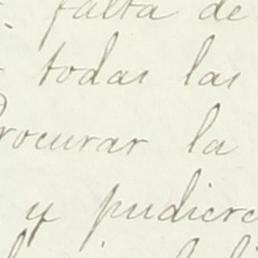 falta de
todas las
Procurar la
y pudiere